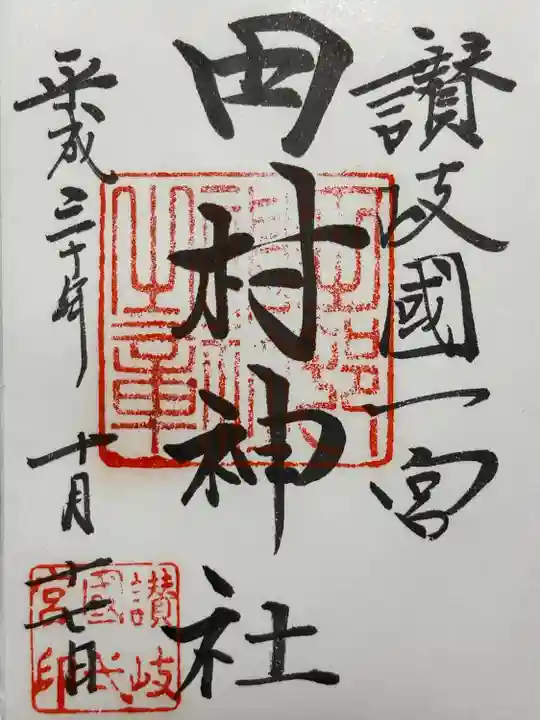 讃岐國一宮
田村神社
平成三十年
十月
廿七日
讃岐
國弌
宮印
之章